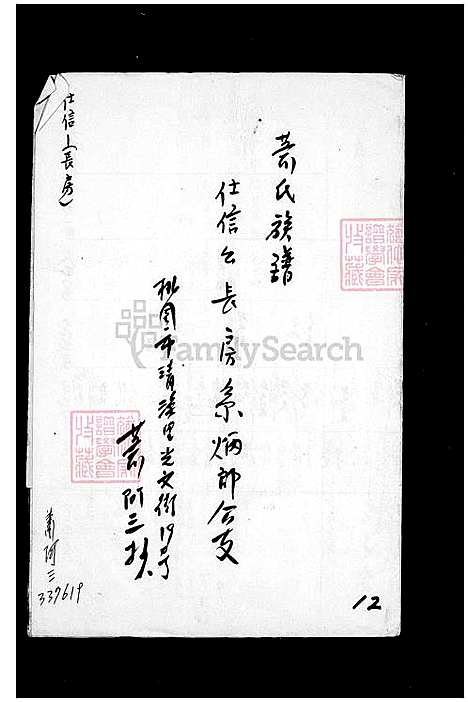 萧氏族譜
仕信公長房系炳郎公支
桃园市清溪里光文街19号
萧阿三抄
仕信(長房)
萧阿三
337619
12
譜學會
收藏
FamilySearch